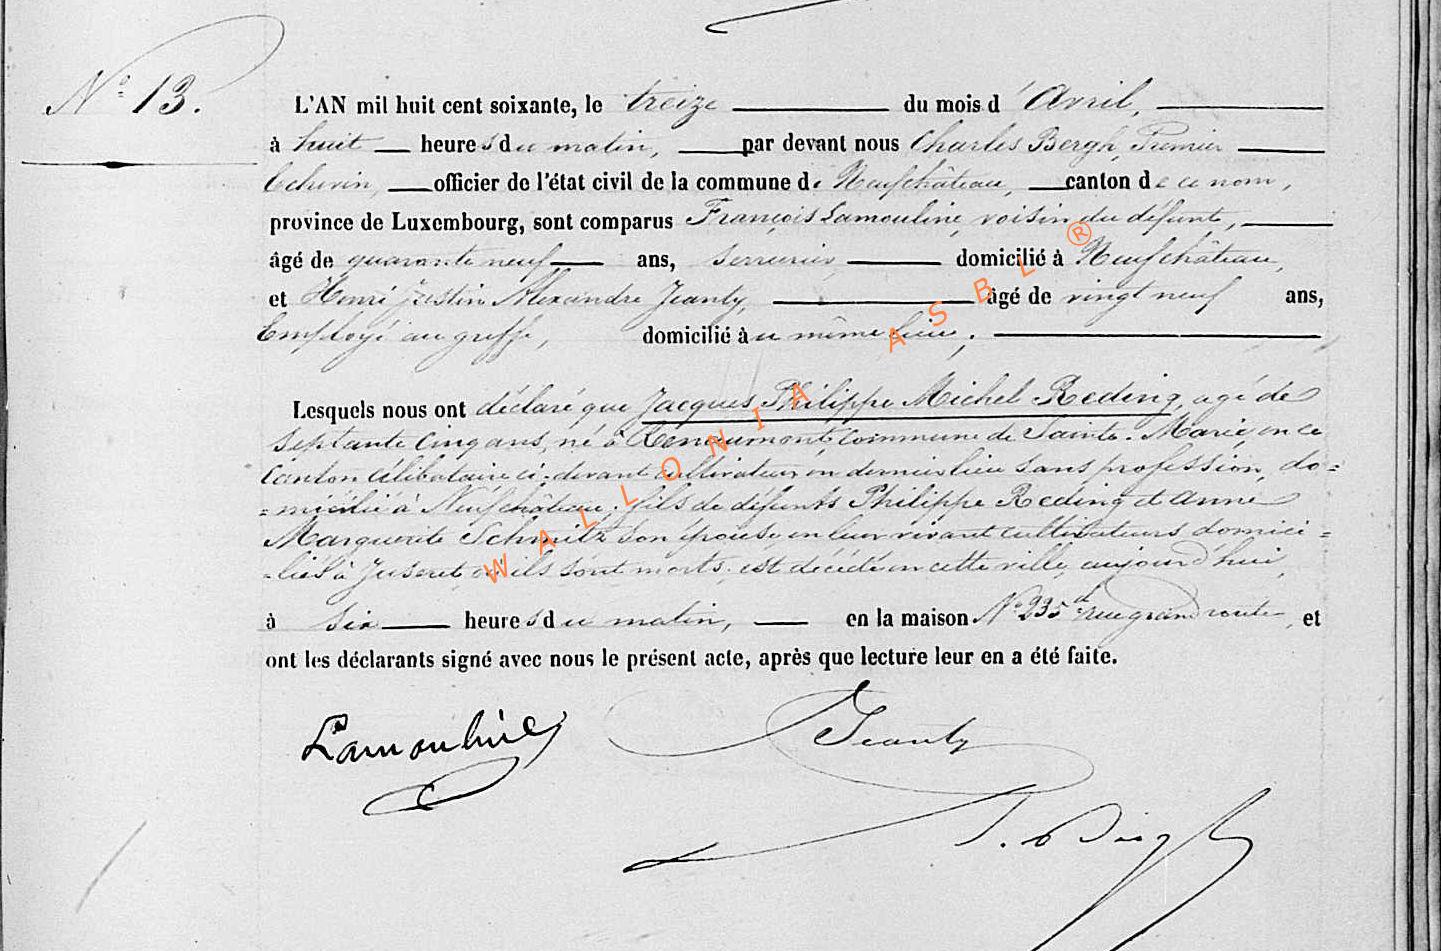 N° 13.
L'AN mil huit cent soixante, le treize du mois d'Avril,
à huit heures du matin, par devant nous Charles Bergh, Premier
Echevin, officier de l'état civil de la commune de Neufchâteau, canton de ce nom,
province de Luxembourg, sont comparus François Lamouline, voisin du défunt,
âgé de quarante neuf ans, serrurier, domicilié à Neufchâteau,
et Henri Justin Alexandre Jeanty, âgé de vingt neuf ans,
Employé au greffe, domicilié au même lieu;
Lesquels nous ont déclaré que Jacques Philippe Michel Reding, agé de
septante cinq ans, né à Renaumont, commune de Sainte-Marie, en ce
canton célibataire ci-devant cultivateur en dernier lieu sans profession, do=
=micilié à Neufchâteau; fils de défunts Philippe Reding et Anne
Marguerite Schmitz son épouse, en leur vivant cultivateurs domici=
=liés à Juseret, où ils sont morts; est décédé en cette ville, aujourd'hui,
à six heures du matin, en la maison N° 235 rue grand route, et
ont les déclarants signé avec nous le présent acte, après que lecture leur en a été faite.
Lamouline
Jeanty
Bergh
WALLONIA ASBL ®